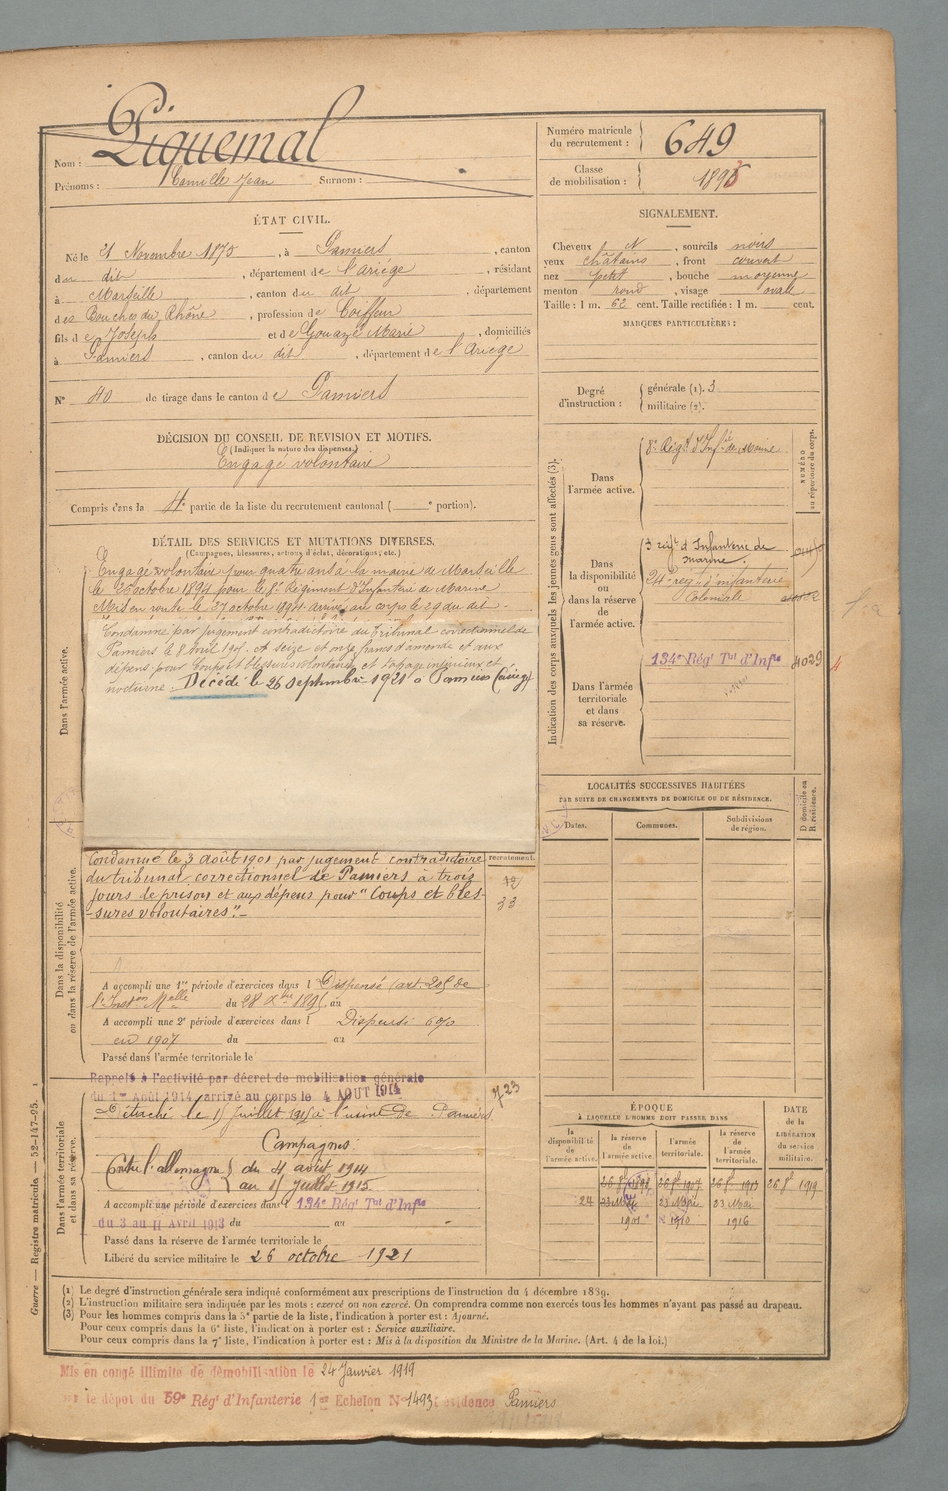 Nom : Piquemal
Prénoms : Camille Jean Surnom :
Numéro matricule du recrutement : 649
Classe de mobilisation : 1895
ÉTAT CIVIL.
Né le 21 Novembre 1875, à Pamiers, canton
du dit, département de l'Ariége, résidant
à Marseille, canton du dit, département
des Bouches du Rhône, profession de Coiffeur
fils de Joseph et de Gouazé Marie, domiciliés
à Pamiers, canton du dit, département de l'Ariége
N° 40 de tirage dans le canton de Pamiers
SIGNALEMENT.
Cheveux N, sourcils noirs
yeux châtains, front couvert
nez petit, bouche moyenne
menton rond, visage ovale
Taille : 1 m. 62 cent. Taille rectifiée : 1 m. cent.
MARQUES PARTICULIÈRES :
Degré d'instruction : générale (1). 3
militaire (2).
DÉCISION DU CONSEIL DE REVISION ET MOTIFS.
(Indiquer la nature des dispenses.)
Engagé volontaire
Compris dans la 4e partie de la liste du recrutement cantonal ( e portion).
DÉTAIL DES SERVICES ET MUTATIONS DIVERSES.
(Campagnes, blessures, actions d'éclat, décorations, etc.)
Dans l'armée active.
Engagé volontaire pour quatre ans à la mairie de Marseille
le 26 octobre 1894 pour le 8e Régiment d'Infanterie de Marine
Mis en route le 27 octobre 1894 arrivé au corps le 29 du dit -
Condamné par jugement contradictoire du Tribunal correctionnel de
Pamiers le 8 avril 1905 à seize et onze francs d'amende et aux
dépens pour Coups et blessures volontaires et tapage injurieux et
nocturne. Décédé le 26 septembre 1921 à Pamiers (Ariège)
Dans la disponibilité ou dans la réserve de l'armée active.
Condamné le 3 août 1901 par jugement contradictoire
du tribunal correctionnel de Pamiers à trois
jours de prison et aux dépens pour "Coups et bles-
-sures volontaires". -
recrutement.
72
33
A accompli une 1re période d'exercices dans l Dispensé (art. 205 de
l'Inston Melle du 28 Xbre 1895 au
A accompli une 2e période d'exercices dans l Dispensé 6%
en 1907 du au
Passé dans l'armée territoriale le
Dans l'armée territoriale et dans sa réserve.
Rappelé à l'activité par décret de mobilisation générale
du 1er Août 1914, arrivé au corps le 4 AOUT 1914
Détaché le 15 Juillet 1915 à l'usine de Pamiers
723
Campagnes
Contre l'allemagne du 4 août 1914
au 15 juillet 1915
A accompli une période d'exercices dans l 134e Régt Tal d'Infie
du 3 au 11 Avril 1913 du au
Passé dans la réserve de l'armée territoriale le
Libéré du service militaire le 26 octobre 1921
Indication des corps auxquels les jeunes gens sont affectés (3).
NUMÉRO au répertoire du corps.
Dans l'armée active.
8e Régt d'Infie de Marine
Dans la disponibilité ou dans la réserve de l'armée active.
3 regt d'Infanterie de
marine.
24e reg d'infanterie
Coloniale
Dans l'armée territoriale et dans sa réserve.
134e Régt Tal d'Infie
4029
LOCALITÉS SUCCESSIVES HABITÉES
PAR SUITE DE CHANGEMENTS DE DOMICILE OU DE RÉSIDENCE.
Dates. Communes. Subdivisions de région.
D domicile ou R résidence.
ÉPOQUE
À LAQUELLE L'HOMME DOIT PASSER DANS
la disponibilité de l'armée active.
la réserve de l'armée active.
l'armée territoriale.
la réserve de l'armée territoriale.
DATE de la LIBÉRATION du service militaire.
26 8bre 1898 26 8bre 1907 26 8bre 1913 26 8bre 1919
24 23 Mai 23 Mai 23 Mai
1901 1910 1916
(1) Le degré d'instruction générale sera indiqué conformément aux prescriptions de l'instruction du 4 décembre 1889.
(2) L'instruction militaire sera indiquée par les mots : exercé ou non exercé. On comprendra comme non exercés tous les hommes n'ayant pas passé au drapeau.
(3) Pour les hommes compris dans la 5e partie de la liste, l'indication à porter est : Ajourné.
Pour ceux compris dans la 6e liste, l'indication à porter est : Service auxiliaire.
Pour ceux compris dans la 7e liste, l'indication à porter est : Mis à la disposition du Ministre de la Marine. (Art. 4 de la loi.)
Guerre — Registre matricule. — 52-147-95.
Mis en congé illimité de démobilisation le 24 Janvier 1919
par le dépot du 59e Régt d'Infanterie 1er Echelon N° 1493 résidence Pamiers